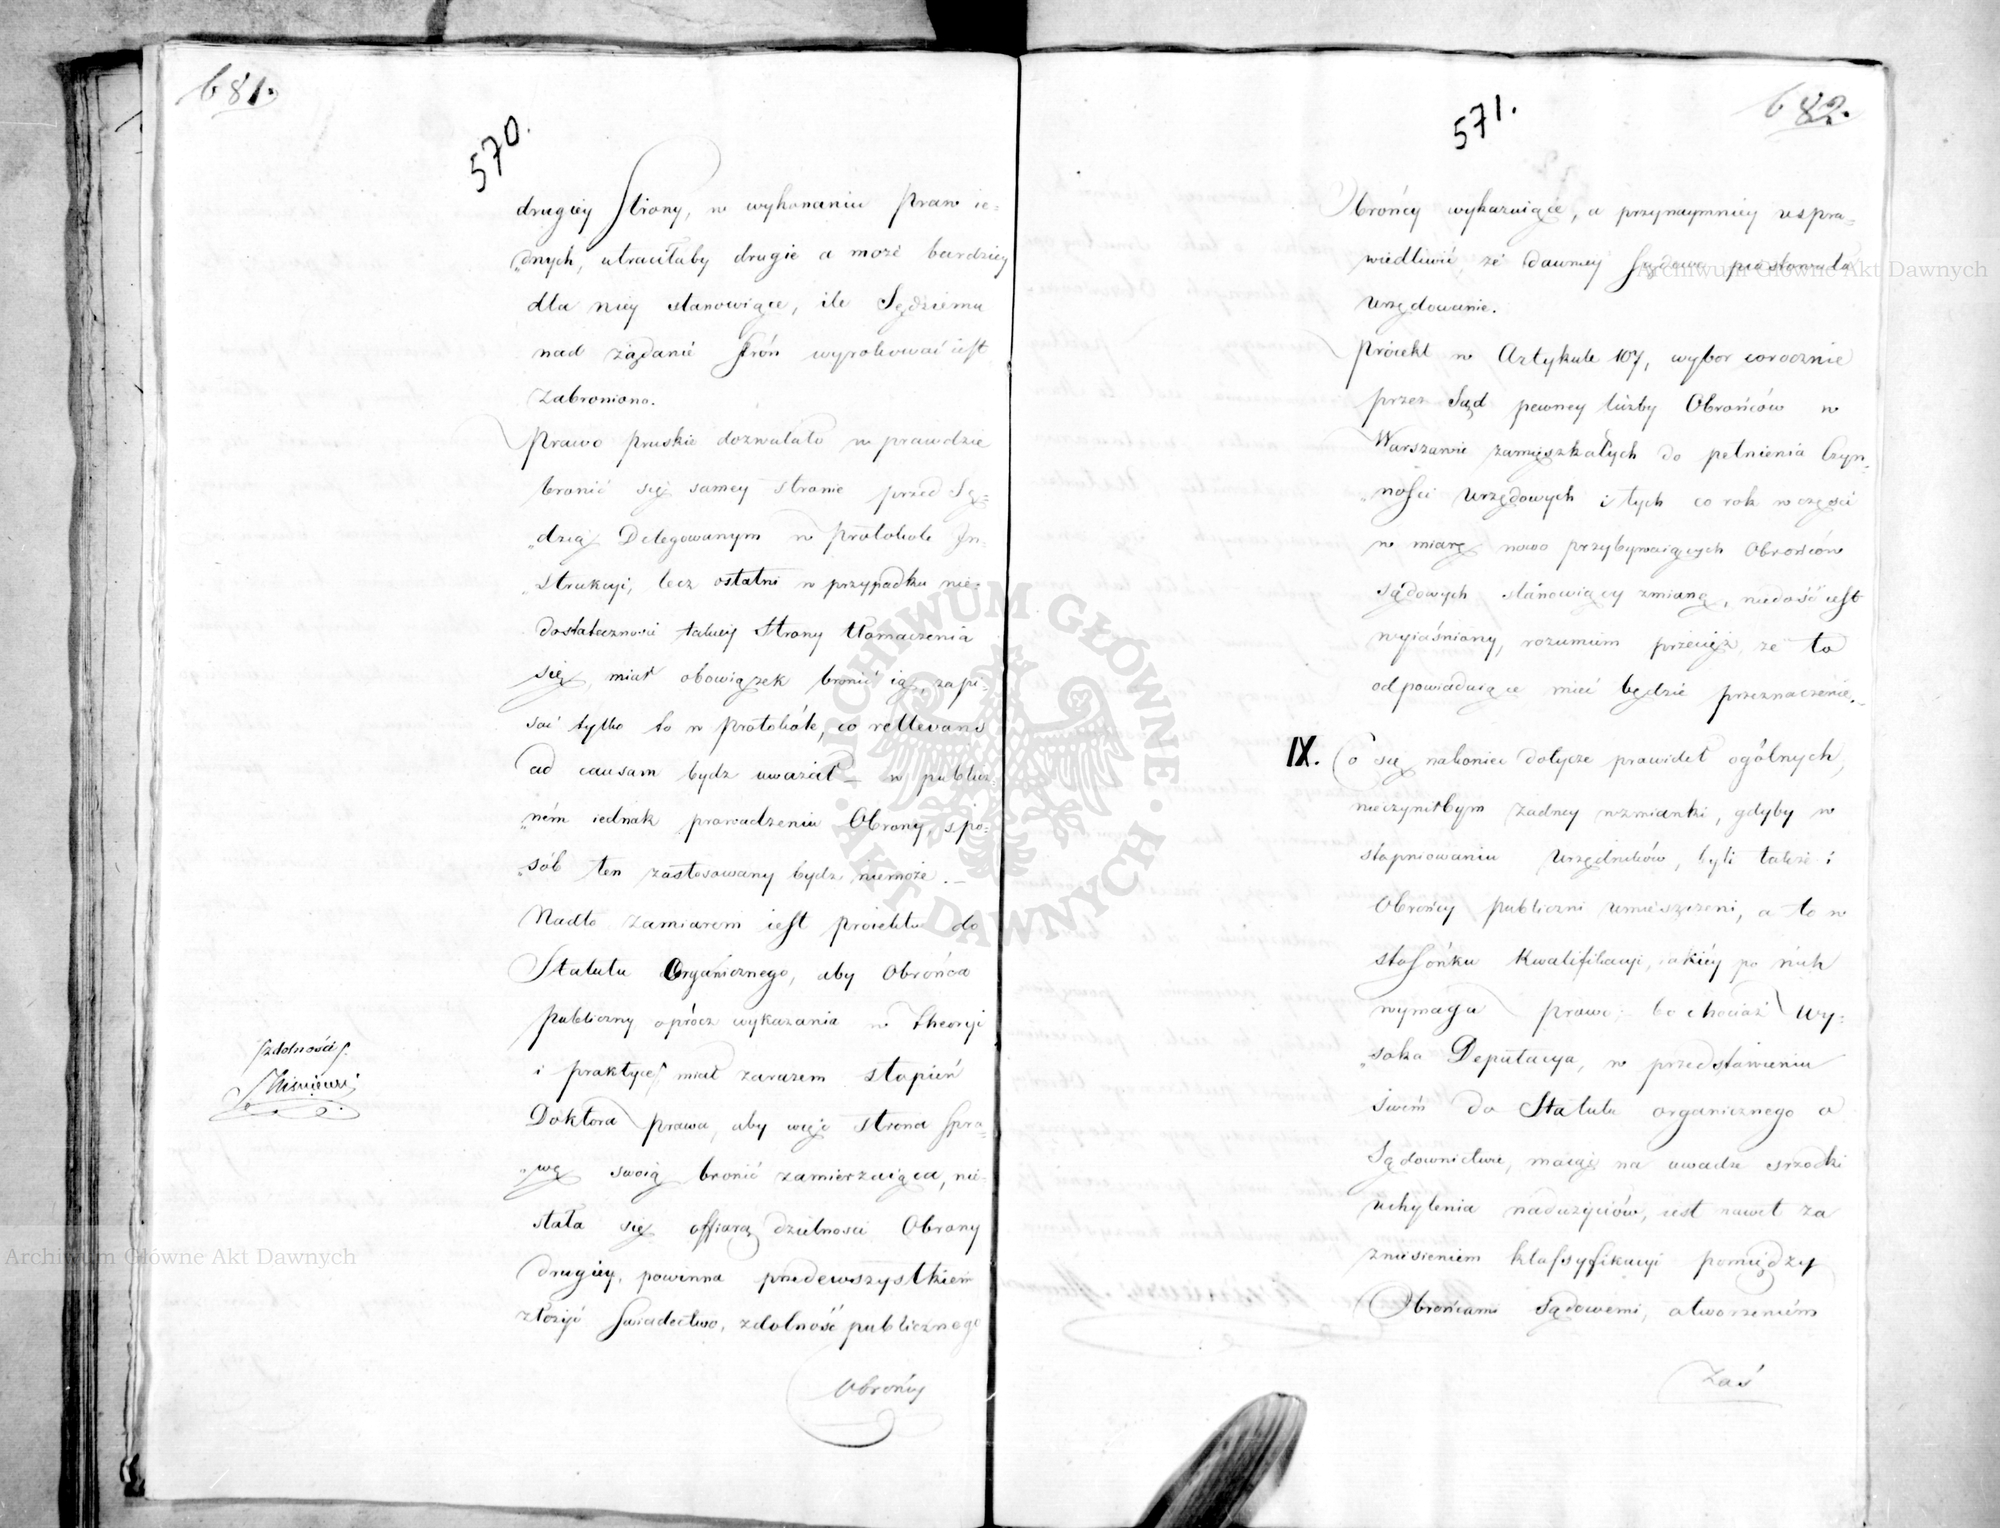 681.
570.
drugiey Strony, w wykonaniu Praw ie-
„dnych, utraciłaby drugie a może bardziey
dla niey stanowiące, ile Sędziemu
nad żądanie Stron wyrokować iest
zabroniono.
Prawo Pruskie dozwalało w prawdzie
bronić się samey stronie przed Sę-
„dzią Delegowanym w Protokole In-
„strukcyi, lecz ostatni w przypadku nie-
dostateczności takiey Strony tłomaczenia
się, miał obowiązek bronić ią, zapi-
sać tylko to w Protokóle, co rellevans
ad causam bydz uważał — w publicz-
„ném iednak prowadzeniu Obrony, spo-
„sób ten zastosowany bydz niemoże. —
Nadto zamiarem iest proiektu do
Statutu Organicznego, aby Obrońca
Publiczny oprócz wykazania w Theoryi
i praktyce miał zarazem stopień
Doktora prawa, aby więc strona Spra-
„wę swoią bronić zamierzaiąca, nie-
stała się offiarą dzielności Obrony
drugiey, powinna przedewszystkiem
złożyć Swiadectwo, zdolność publicznego
Obrońcy
zdolności
571.
682.
Obrońcy wykazuiące, a przynaymniey uspra-
wiedliwić, że dawniey Sędowe piastowała
Urzędowanie.
Proiekt w Artykule 107, wybor corocznie
przez Sąd pewney liczby Obrońców w
Warszawie zamięszkałych do pełnienia Czyn-
„ności Urzędowych i tych co rok w części
w miarę nowo przybywaiących Obrońców
sądowych stanowiący zmianę, niedość iest
wyiaśniony, rozumiem przecież, że to
odpowiadaiące mieć będzie przeznaczenie. —
IX. Co się nakoniec dotycze prawideł ogólnych,
nieczyniłbym żadney wzmianki, gdyby w
stopniowaniu Urzędników, byli także i
Obrońcy publiczni umieszczeni, a to w
stosónku kwalifikacyi, iakiey po nich
wymaga prawo: bo chociaż Wy-
„soka Deputacya, w przedstawieniu
swém do Statutu organicznego o
Sądownictwie, maiąc na uwadze srzodki
uchylenia nadużyciów, iest nawet za
zniesieniem klassyfikacyi pomiędzy
Obrońcami Sądowemi, otworzeniem
zaś
Archiwum Główne Akt Dawnych
Archiwum Główne Akt Dawnych
ARCHIWUM GŁÓWNE
AKT DAWNYCH